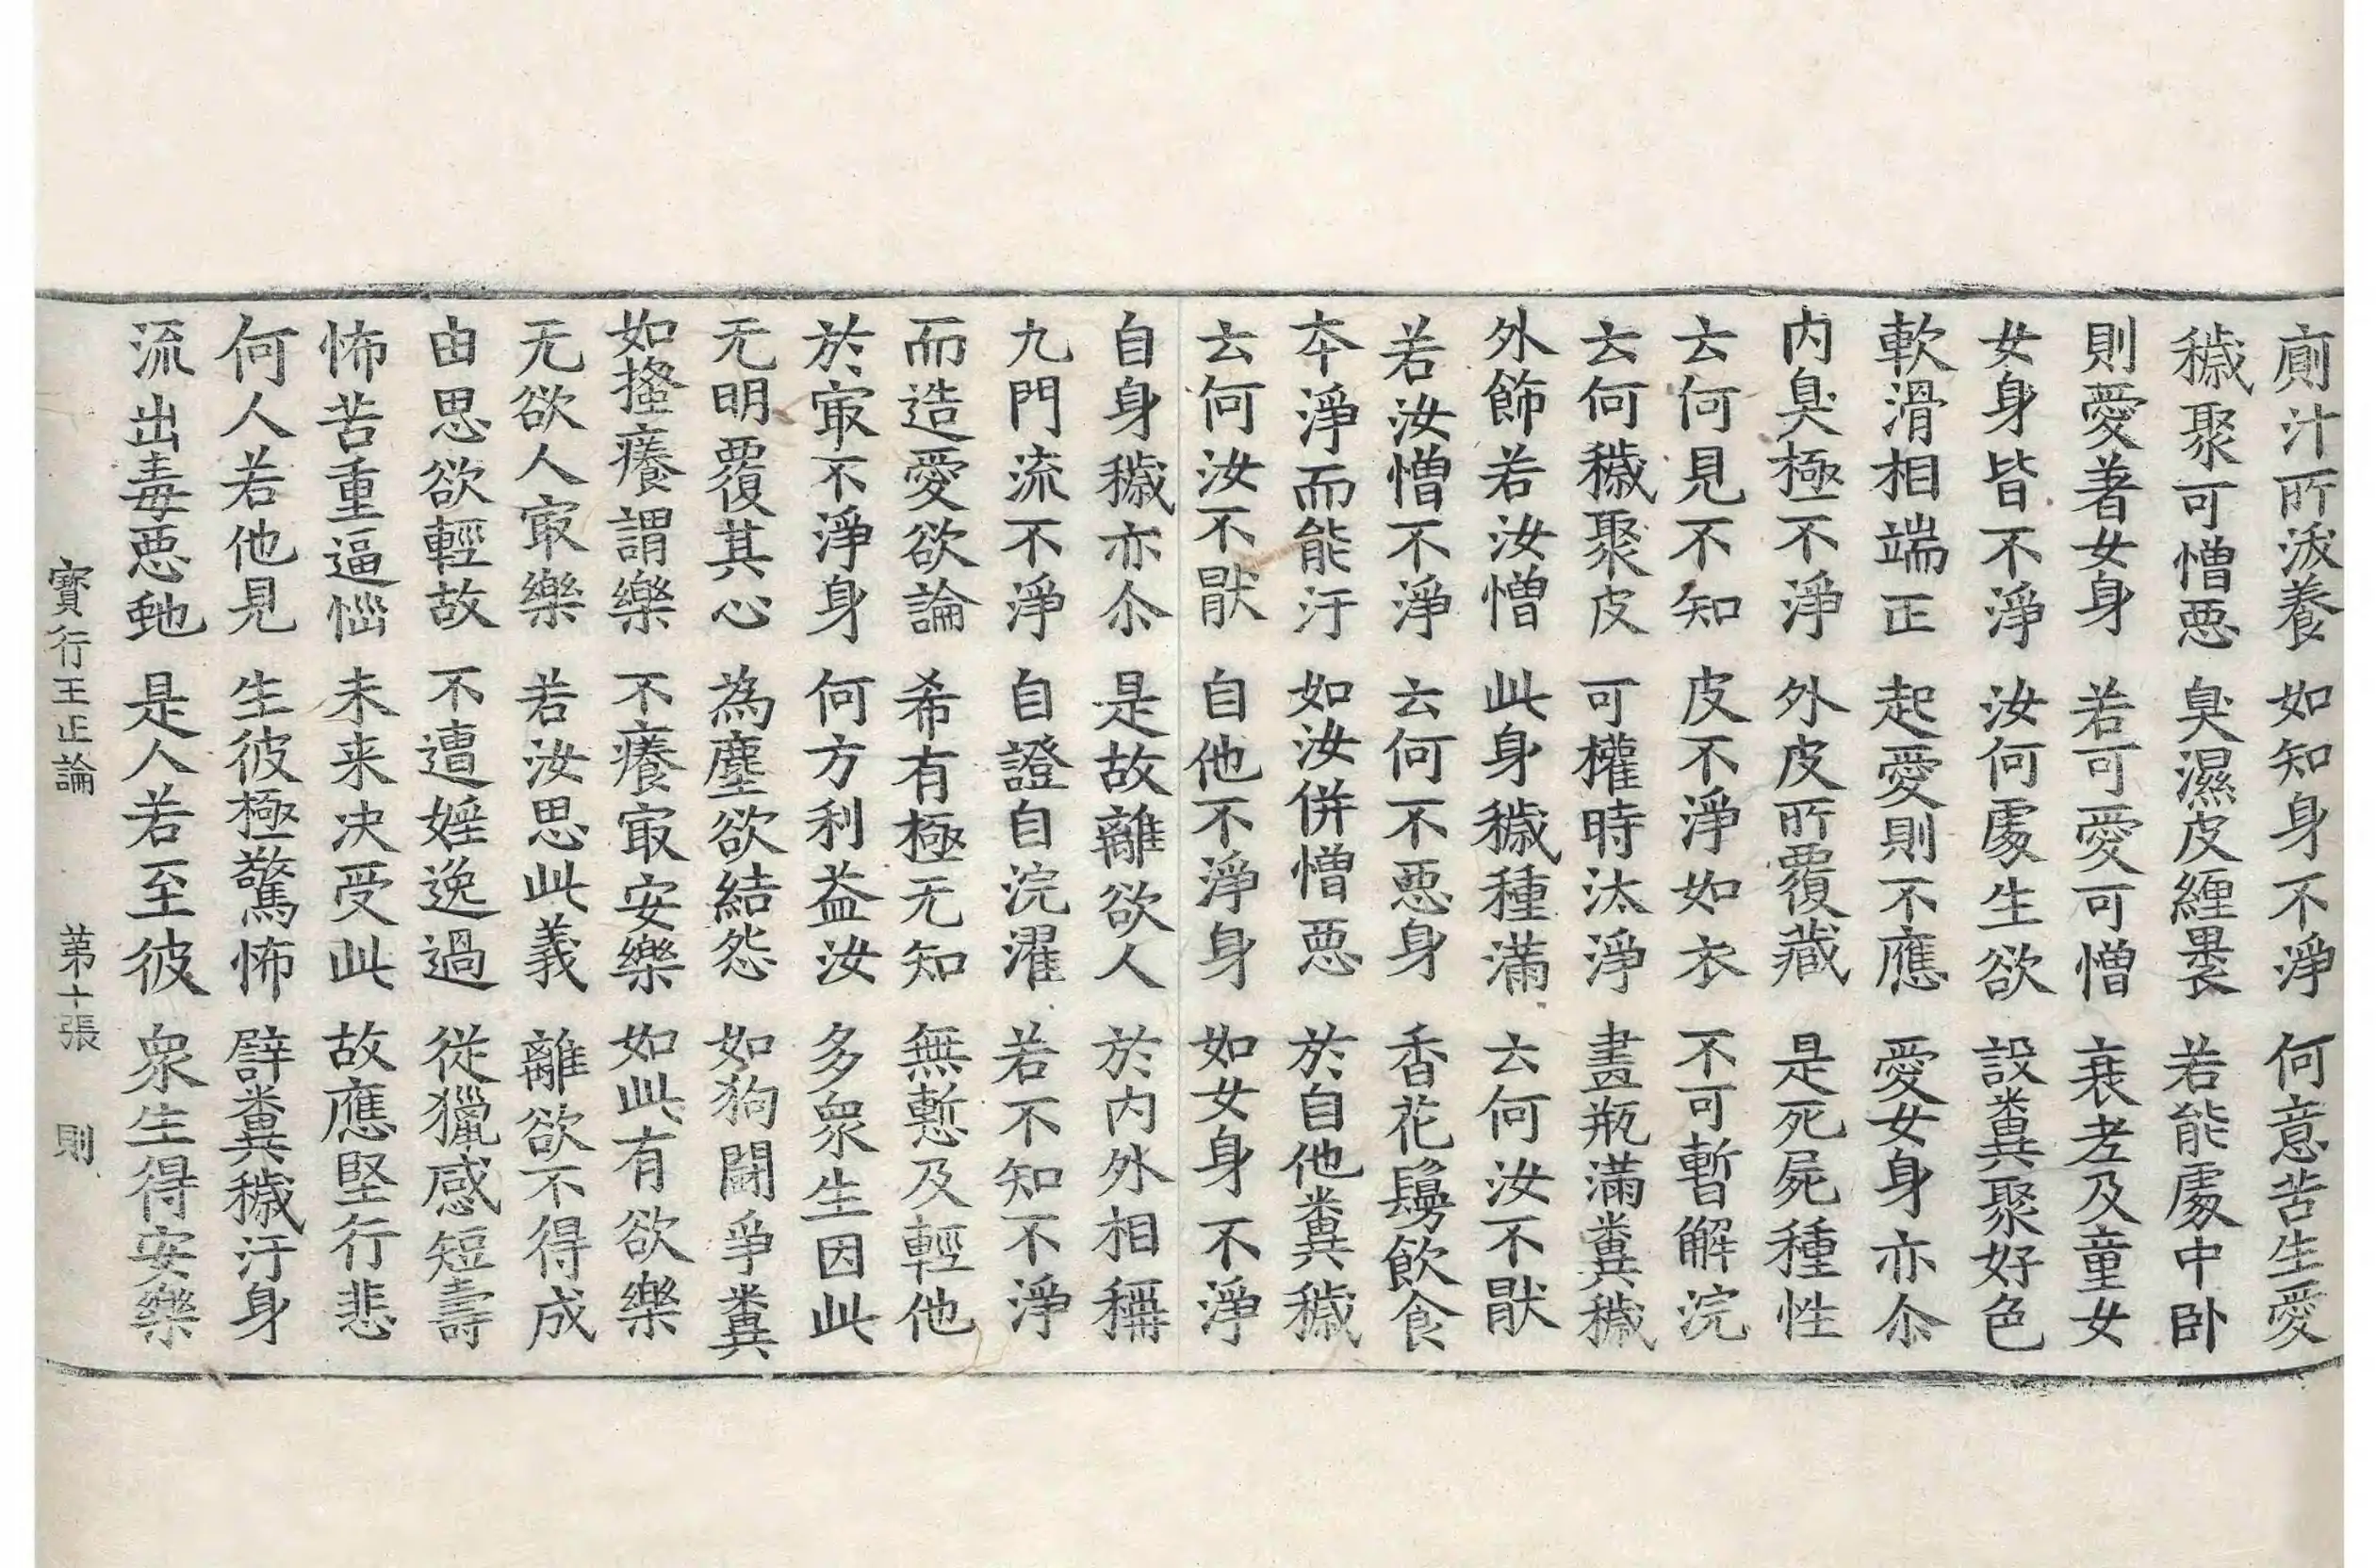 廁汁所洑養 如知身不淨 何意苦生愛
穢聚可憎惡 臭濕皮纏褁 若能處中卧
則愛著女身 若可愛可憎 衰老及童女
女身皆不淨 汝何處生欲 設糞聚好色
軟滑相端正 起愛則不應 愛女身亦尒
内臭極不淨 外皮所覆藏 是死屍種性
云何見不知 皮不淨如衣 不可暫解浣
云何穢聚皮 可權時汰淨 畫瓶滿糞穢
外飾若汝憎 此身穢種滿 云何汝不猒
若汝憎不淨 云何不惡身 香花鬘飲食
夲淨而能汙 如汝併憎惡 於自他糞穢
云何汝不猒 自他不淨身 如女身不淨
自身穢亦尒 是故離欲人 於内外相稱
九門流不淨 自證自浣濯 若不知不淨
而造愛欲論 希有極无知 無慙及輕他
於㝡不淨身 何方利益汝 多衆生因此
无明覆其心 為塵欲結怨 如狗鬪爭糞
如搔癢謂樂 不癢㝡安樂 如此有欲樂
无欲人㝡樂 若汝思此義 離欲不得成
由思欲輕故 不遭婬逸過 從獵感短壽
怖苦重逼惱 未来决受此 故應堅行悲
何人若他見 生彼極驚怖 譬糞穢汙身
流出毒惡虵 是人若至彼 衆生得安樂
寳行王正論 第十張 則